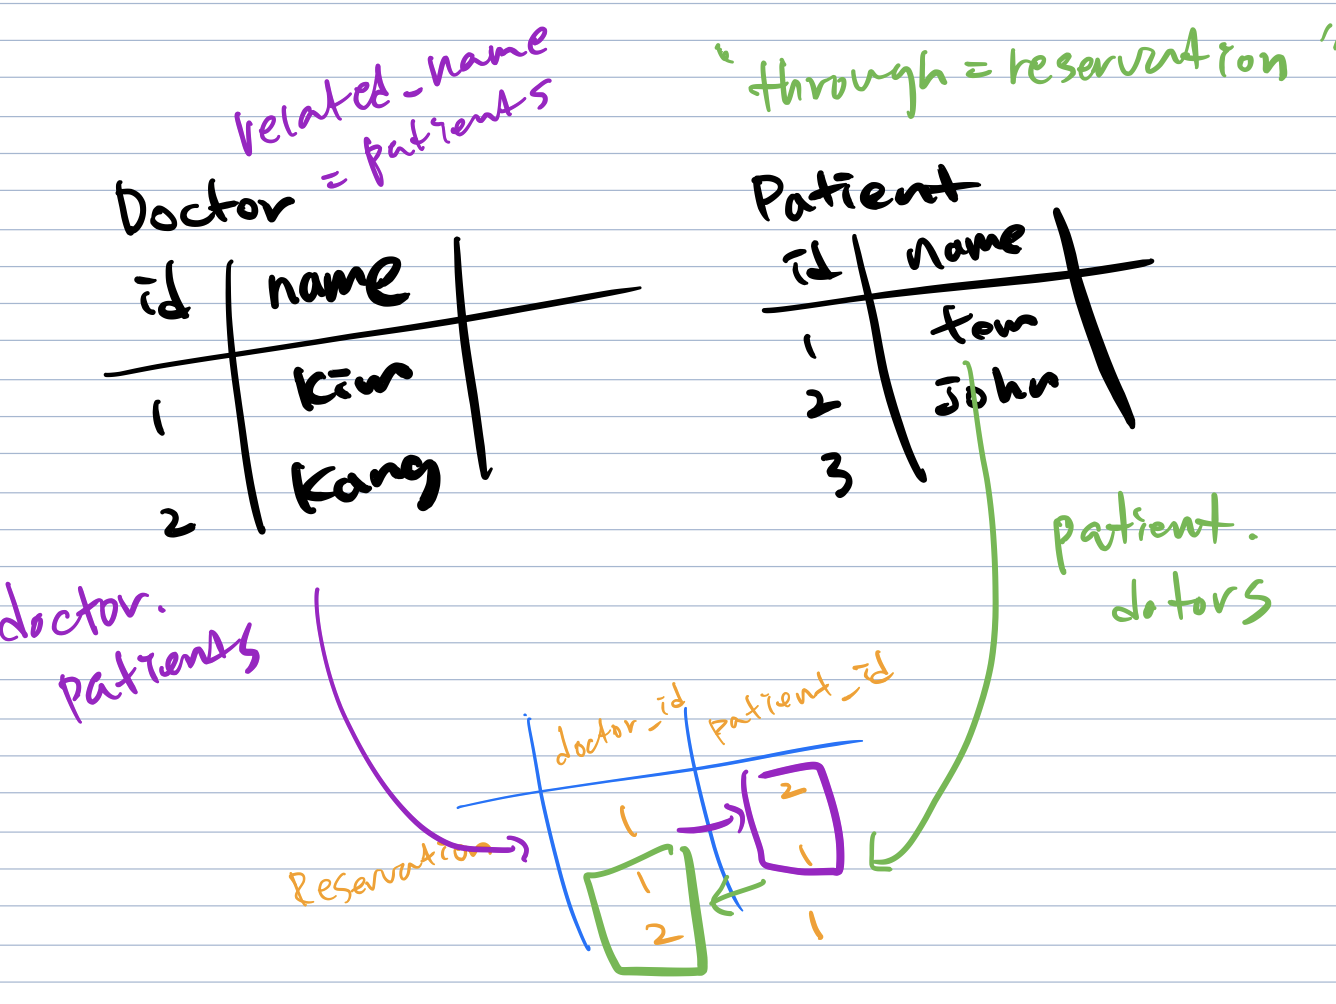 related_name
= patients
"through = reservation"
Doctor
id name
1 Kim
2 Kang
Patient
id name
1 tom
2 john
3
doctor.
patients
patient.
dotors
Reservation
doctor_id patient_id
1 2
1 1
2 1